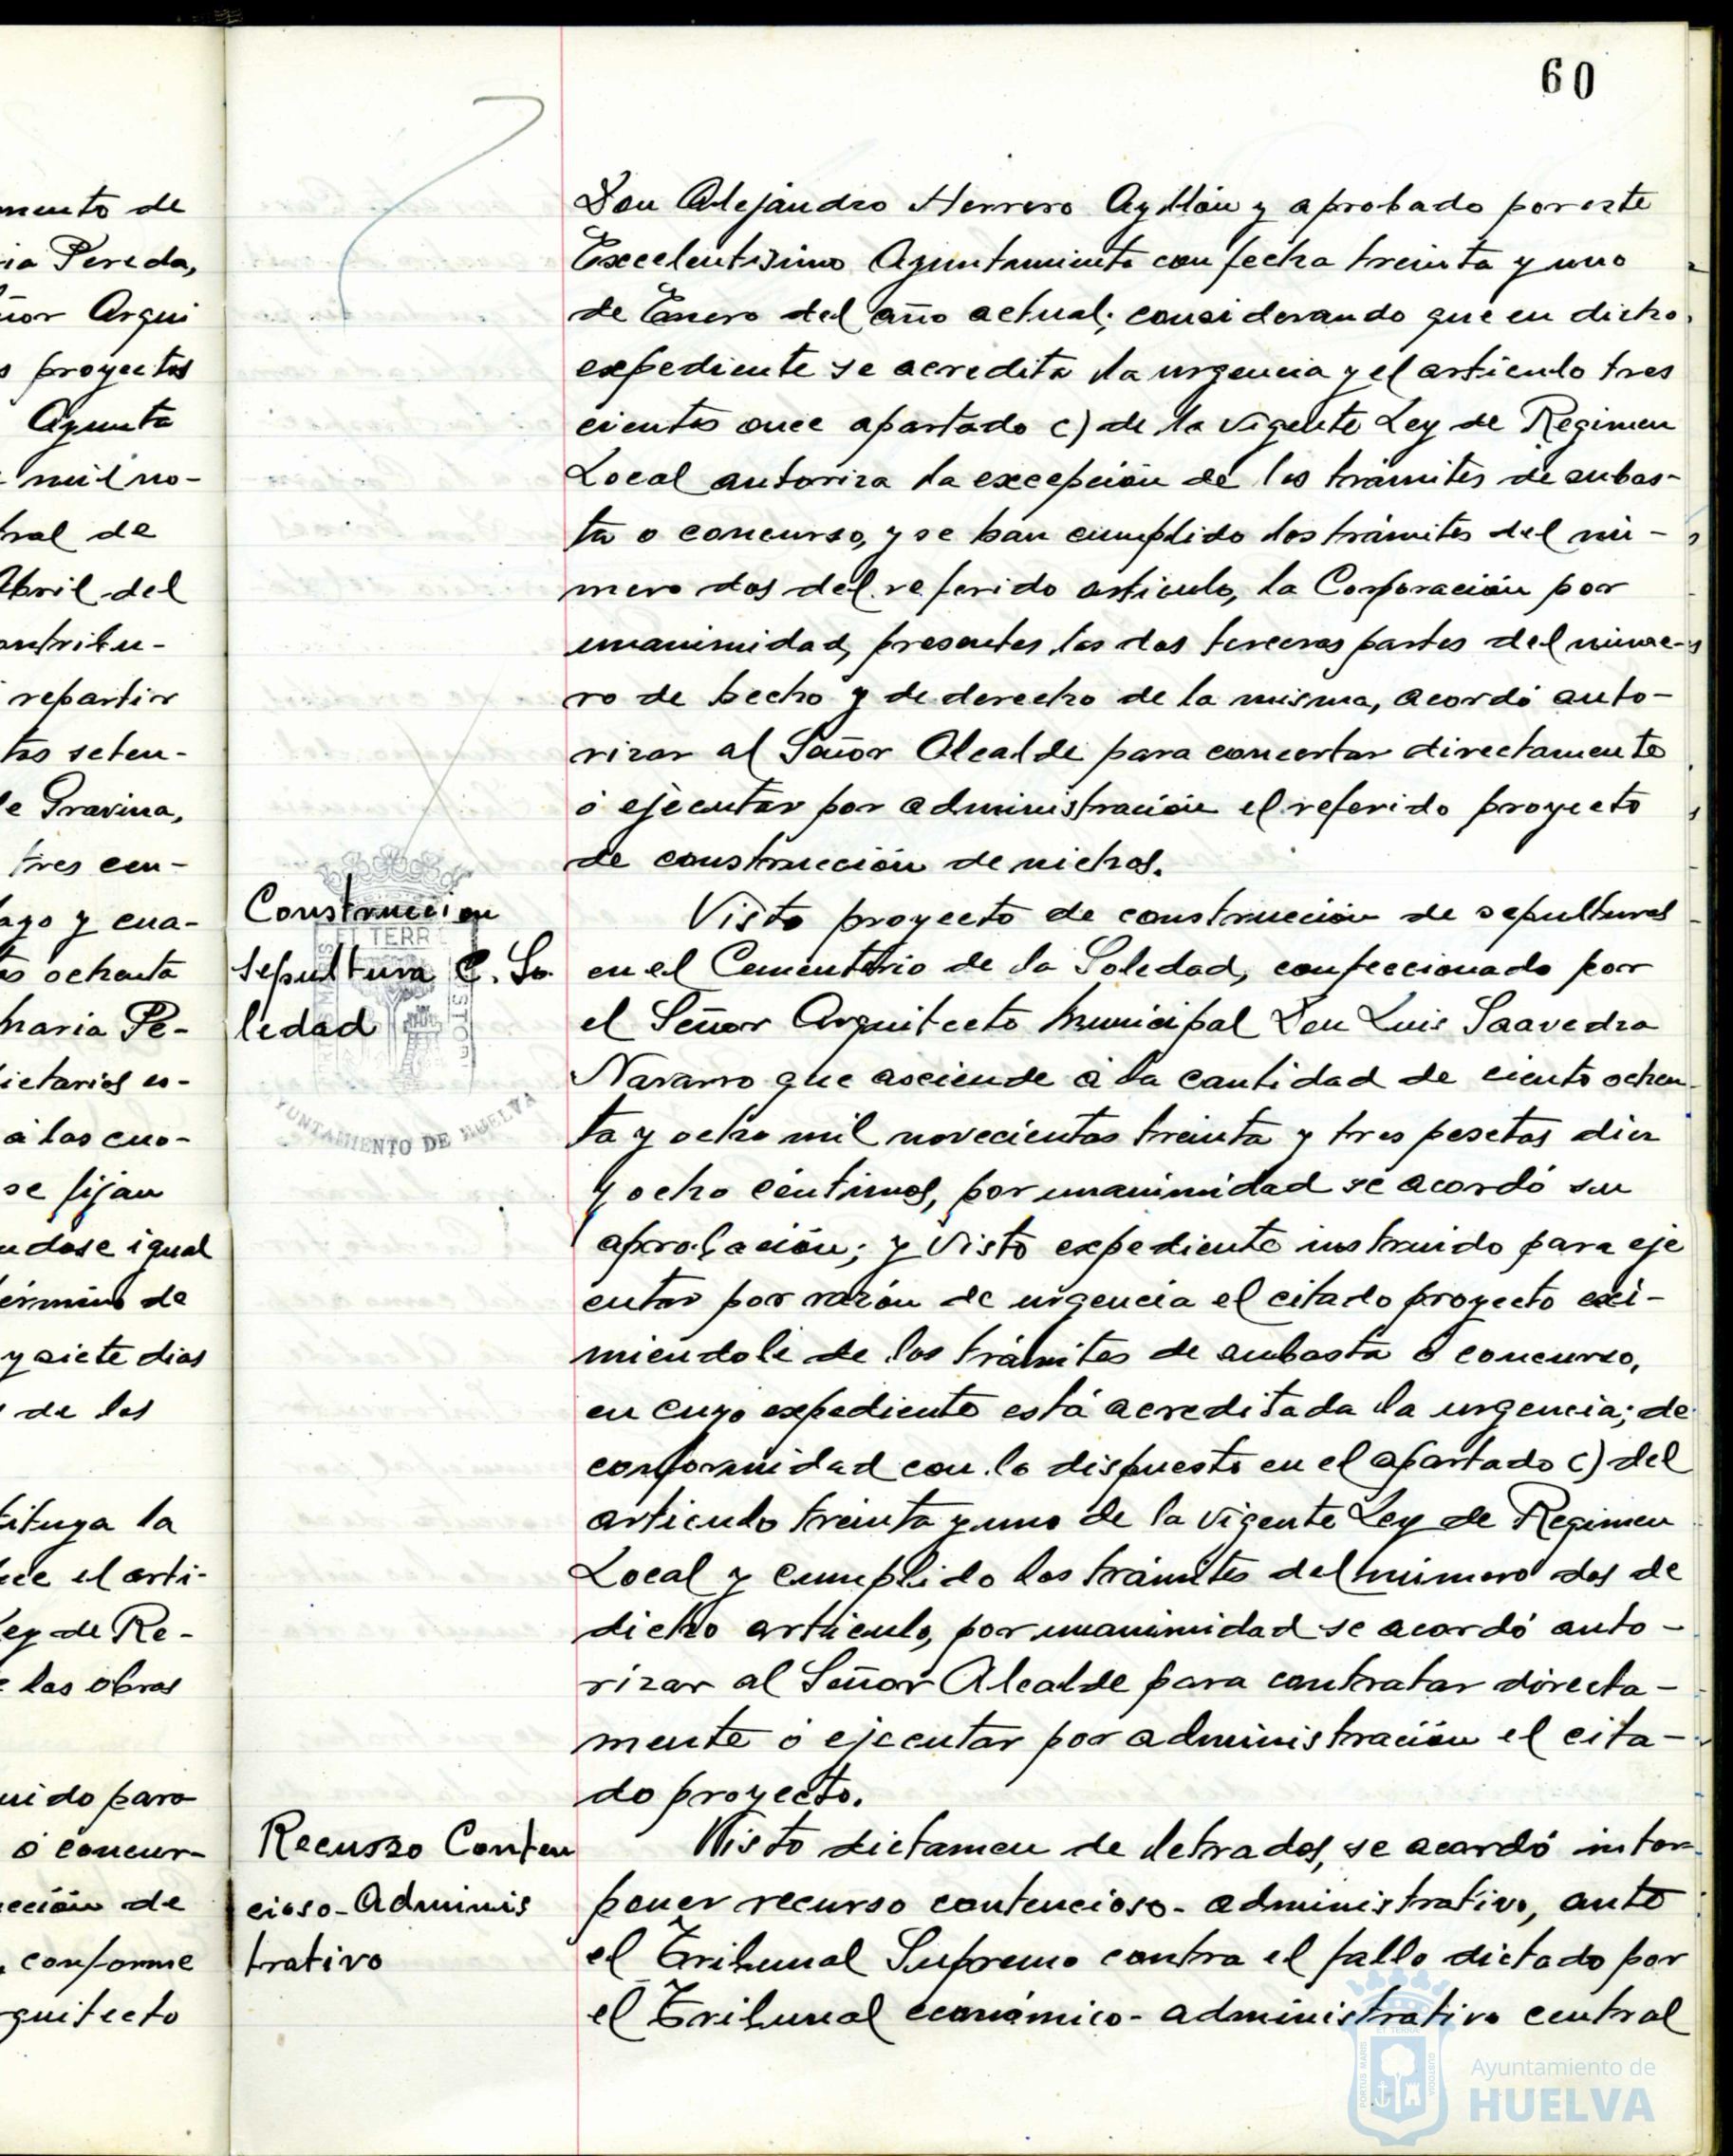 60
mento de
ia Pereda,
ñor Arqui
s proyectos
Ayunta
mil no-
tral de
Abril del
ontribu-
repartir
tas seten-
le Gravina,
tres cen-
ago y cua-
tos ochenta
haria Pe-
ietarios es-
á las cuo-
se fijan
ndose igual
érmino de
y siete dias
de los
tituya la
ece el arti-
Ley de Re-
e las obras
uido para
ó concur-
cción de
conforme
rquitecto
Don Alejandro Herrero Ayllón y aprobado por este
Excelentisimo Ayuntamiento con fecha treinta y uno
de Enero del año actual; considerando que en dicho
expediente se acredita la urgencia y el articulo tres
cientos once apartado c) de la vigente Ley de Regimen
Local autoriza la excepción de los trámites de subas-
ta o concurso, y se han cumplido los trámites del nú-
mero dos del referido articulo, la Corporación por
unanimidad, presentes las dos terceras partes del núme-
ro de hecho y de derecho de la misma, acordó auto-
rizar al Señor Alcalde para concertar directamente
ó ejecutar por administración el referido proyecto
de construcción de nichos.
Construccion
sepultura C. So
ledad
Visto proyecto de construcción de sepulturas
en el Cementerio de la Soledad, confeccionado por
el Señor Arquitecto Municipal Don Luis Saavedra
Navarro que asciende á la cantidad de ciento ochen
ta y ocho mil novecientas treinta y tres pesetas diez
y ocho céntimos, por unanimidad se acordó su
aprobación; y Visto expediente instruido para eje
cutar por razón de urgencia el citado proyecto exi-
miendole de los trámites de subasta ó concurso,
en cuyo expediente está acreditada la urgencia; de
conformidad con lo dispuesto en el apartado c) del
articulo treinta y uno de la vigente Ley de Regimen
Local y cumplido los trámites del número dos de
dicho articulo, por unanimidad se acordó auto-
rizar al Señor Alcalde para contratar directa-
mente ó ejecutar por administración el cita-
do proyecto.
Recurso Conten
cioso-Adminis
trativo
Visto dictamen de letrados, se acordó inter
poner recurso contencioso-administrativo, ante
el Tribunal Supremo contra el fallo dictado por
el Tribunal económico-administrativo central
ET TERR
YUNTAMIENTO DE HUELVA
PORTUS MARIS
ET TERRÆ
CUSTODIA
Ayuntamiento de
HUELVA